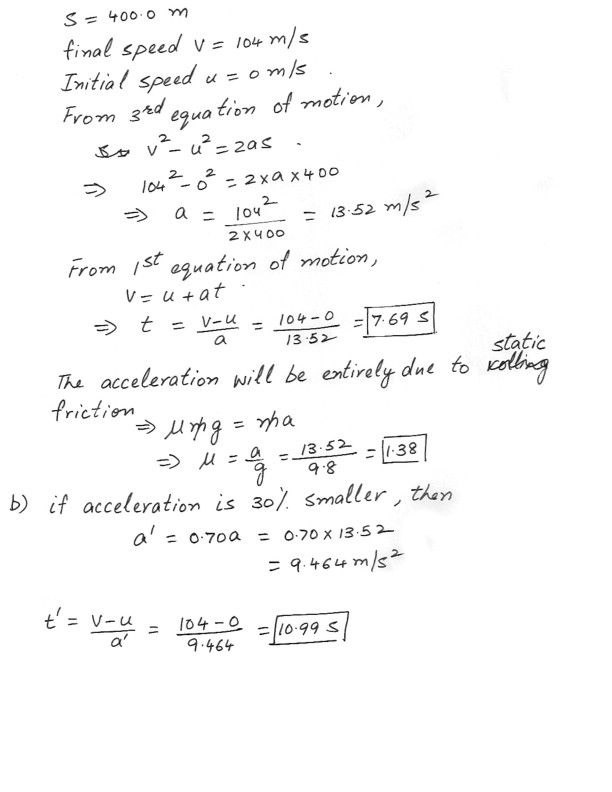 S = 400.0 m
final speed v = 104 m/s
Initial speed u = 0 m/s .
From 3rd equation of motion,
v² - u² = 2as .
⇒ 104² - 0² = 2 x a x 400
⇒ a = 104² / 2 x 400 = 13.52 m/s²
From 1st equation of motion,
v = u + at .
⇒ t = v-u / a = 104-0 / 13.52 = 7.69 s
static
The acceleration will be entirely due to rolling
friction ⇒ μmg = ma
⇒ μ = a/g = 13.52 / 9.8 = 1.38
b) if acceleration is 30% smaller, then
a' = 0.70a = 0.70 x 13.52
= 9.464 m/s²
t' = v-u / a' = 104-0 / 9.464 = 10.99 s